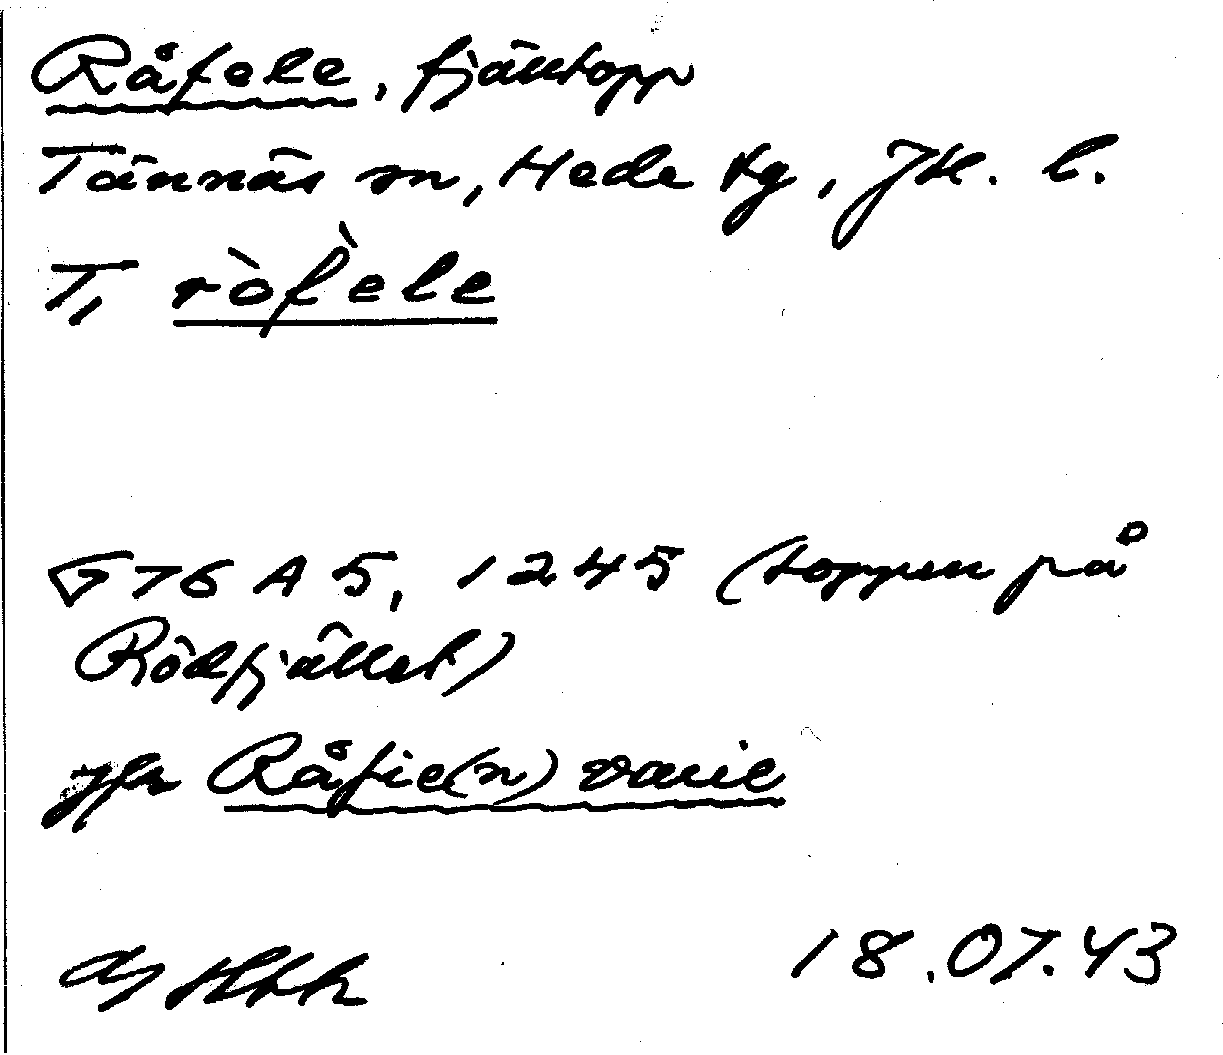 Råfele, fjälltopp
Tännäs sn, Hede tg, Jtl. l.
T, ròf̀ele
G76 A5, 1245 (toppen på
Rödfjället)
jfr Råfie(n) varie
18.07.43